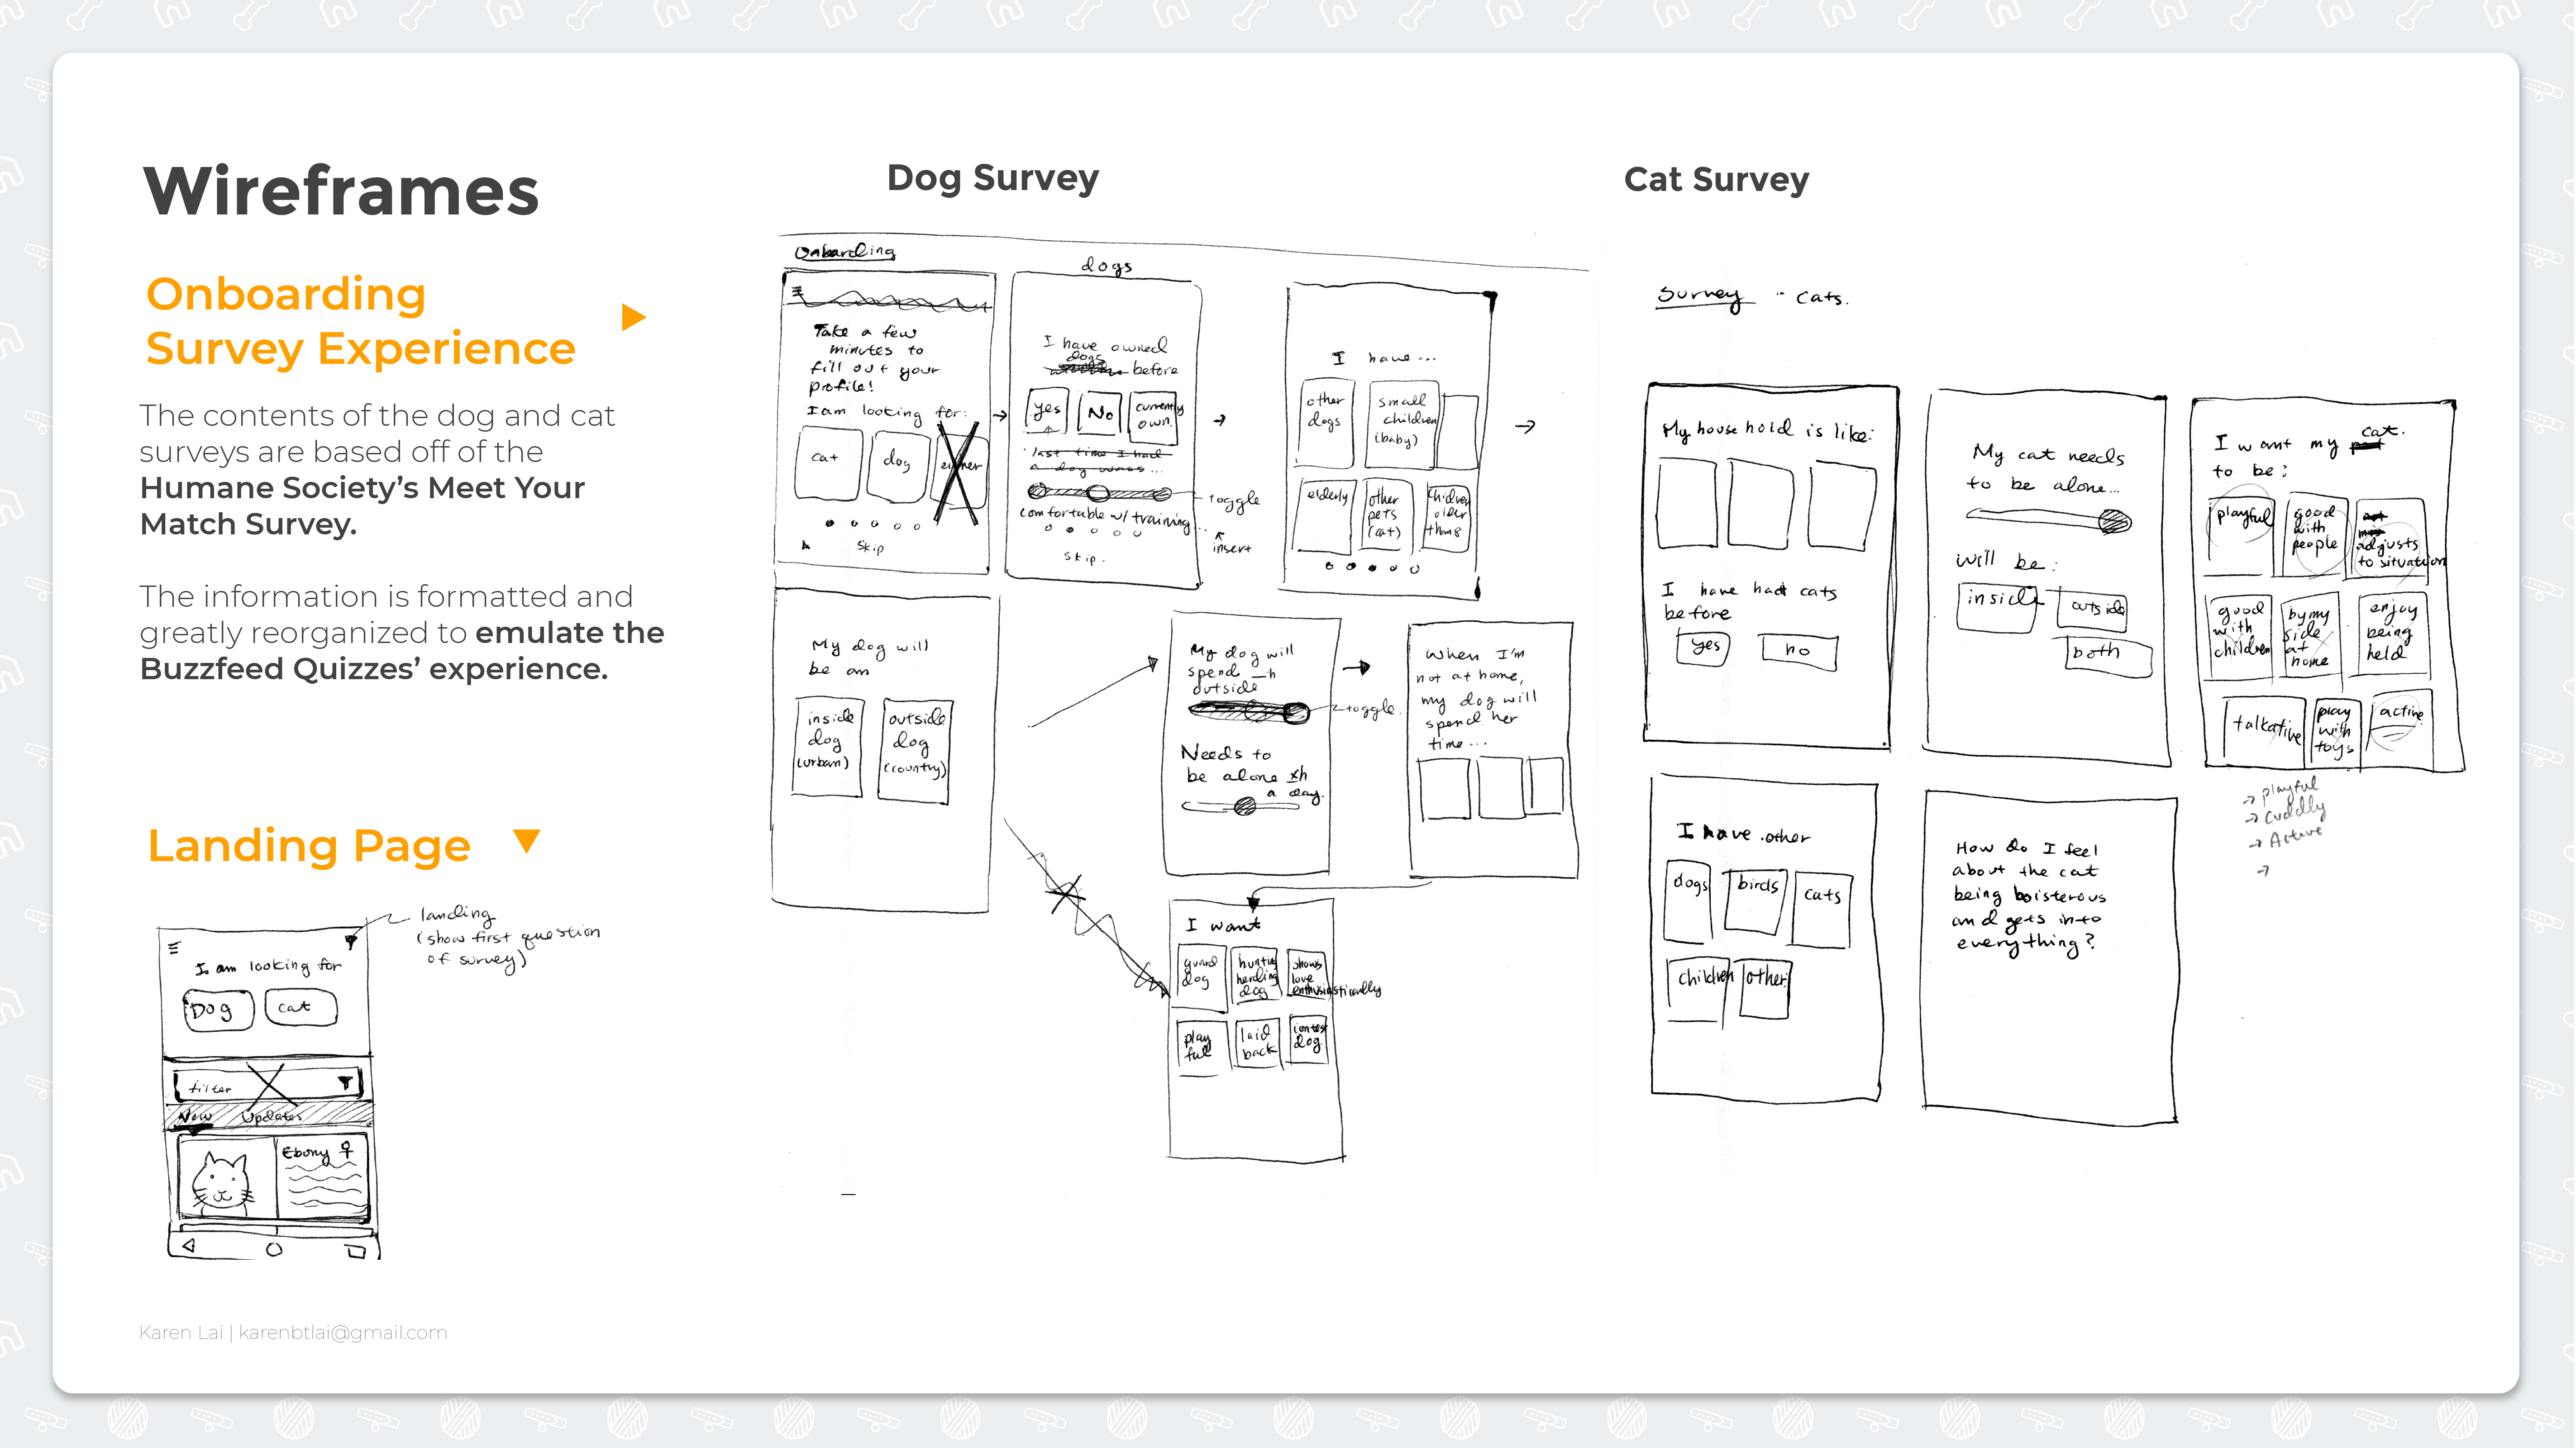 Wireframes
Onboarding
Survey Experience
The contents of the dog and cat
surveys are based off of the
Humane Society's Meet Your
Match Survey.
The information is formatted and
greatly reorganized to emulate the
Buzzfeed Quizzes' experience.
Landing Page
landing
(show first question
of survey)
I am looking for
Dog
cat
filter
New Updates
Ebony ♀
Karen Lai | karenbtlai@gmail.com
Dog Survey
Onboarding
Take a few
minutes to
fill out your
profile!
I am looking for:
cat
dog
either
Skip
dogs
I have owned
dogs
before
yes
No
currently
own.
last time I had
a dog was...
toggle
comfortable w/ training...
insert
Skip.
I have...
other
dogs
small
children
(baby)
elderly
other
pets
(cat)
Children
older
than 8
My dog will
be an
inside
dog
(urban)
outside
dog
(country)
My dog will
spend _h
outside
toggle.
Needs to
be alone xh
a day.
When I'm
not at home,
my dog will
spend her
time...
I want
guard
dog
hunting
herding
dog
shows
love
enthusiastically
play
ful
laid
back
contest
dog.
Cat Survey
Survey - cats.
My household is like:
I have had cats
before
yes
no
My cat needs
to be alone...
will be:
inside
outside
both
I want my cat.
to be:
playful
good
with
people
adjusts
to situation
good
with
children
by my
side
at
home
enjoy
being
held
talkative
play
with
toys
active
→ playful
→ Cuddly
→ Active
→
I have other
dogs
birds
cats
children
other:
How do I feel
about the cat
being boisterous
and gets into
everything?